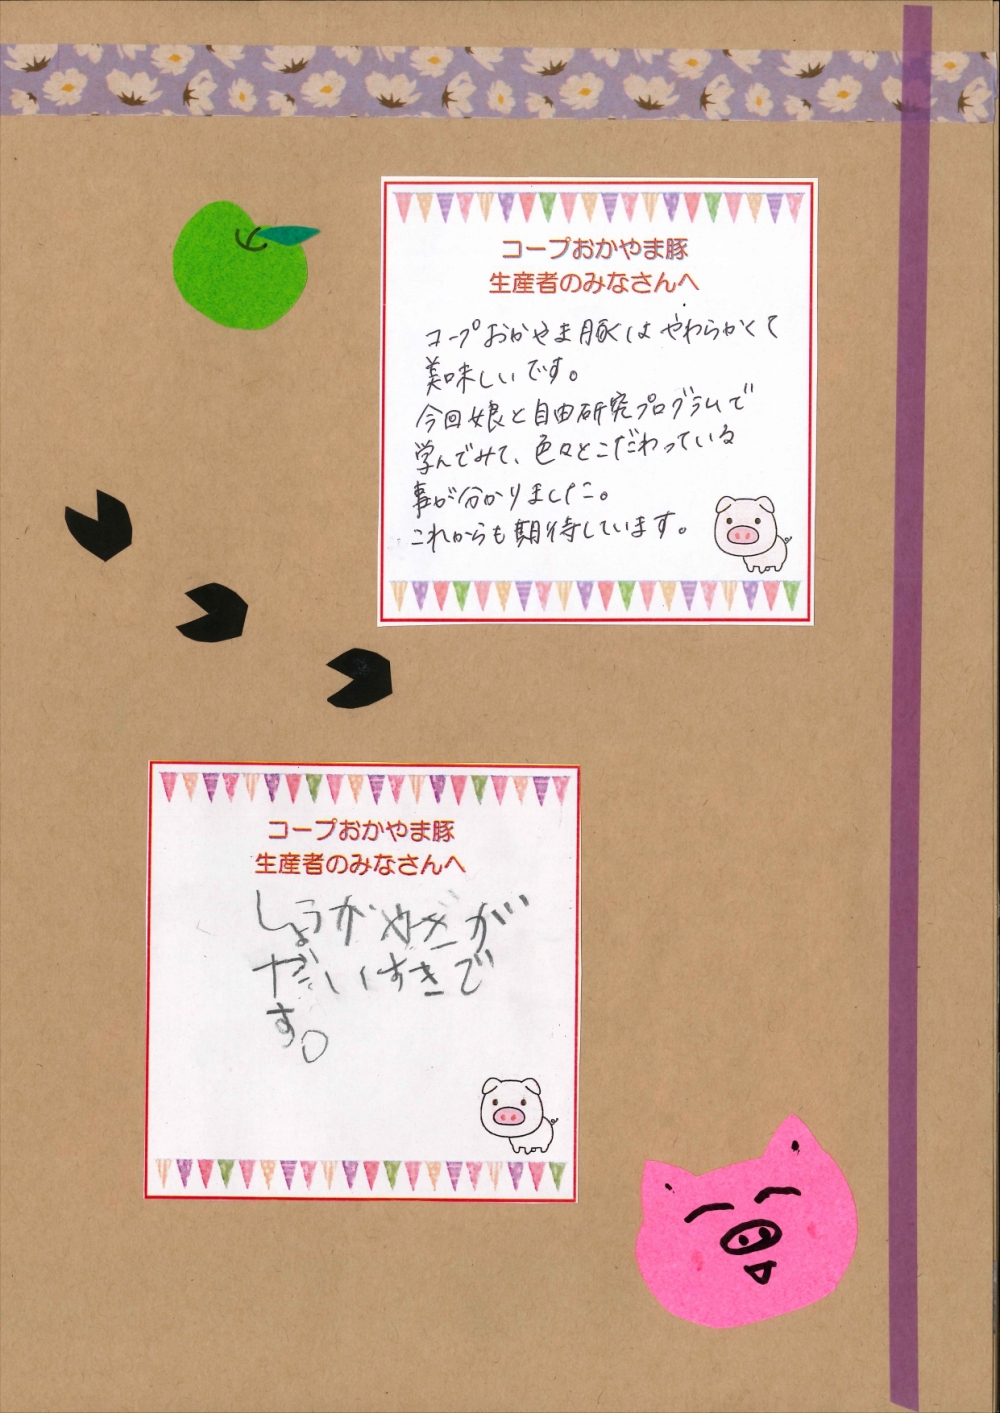 コープおかやま豚
生産者のみなさんへ
コープおかやま豚は やわらかくて
美味しいです。
今回娘と自由研究プログラムで
学んでみて、色々とこだわっている
事が分かりました。
これからも期待しています。
コープおかやま豚
生産者のみなさんへ
しょうがやきが
だいすきで
す。